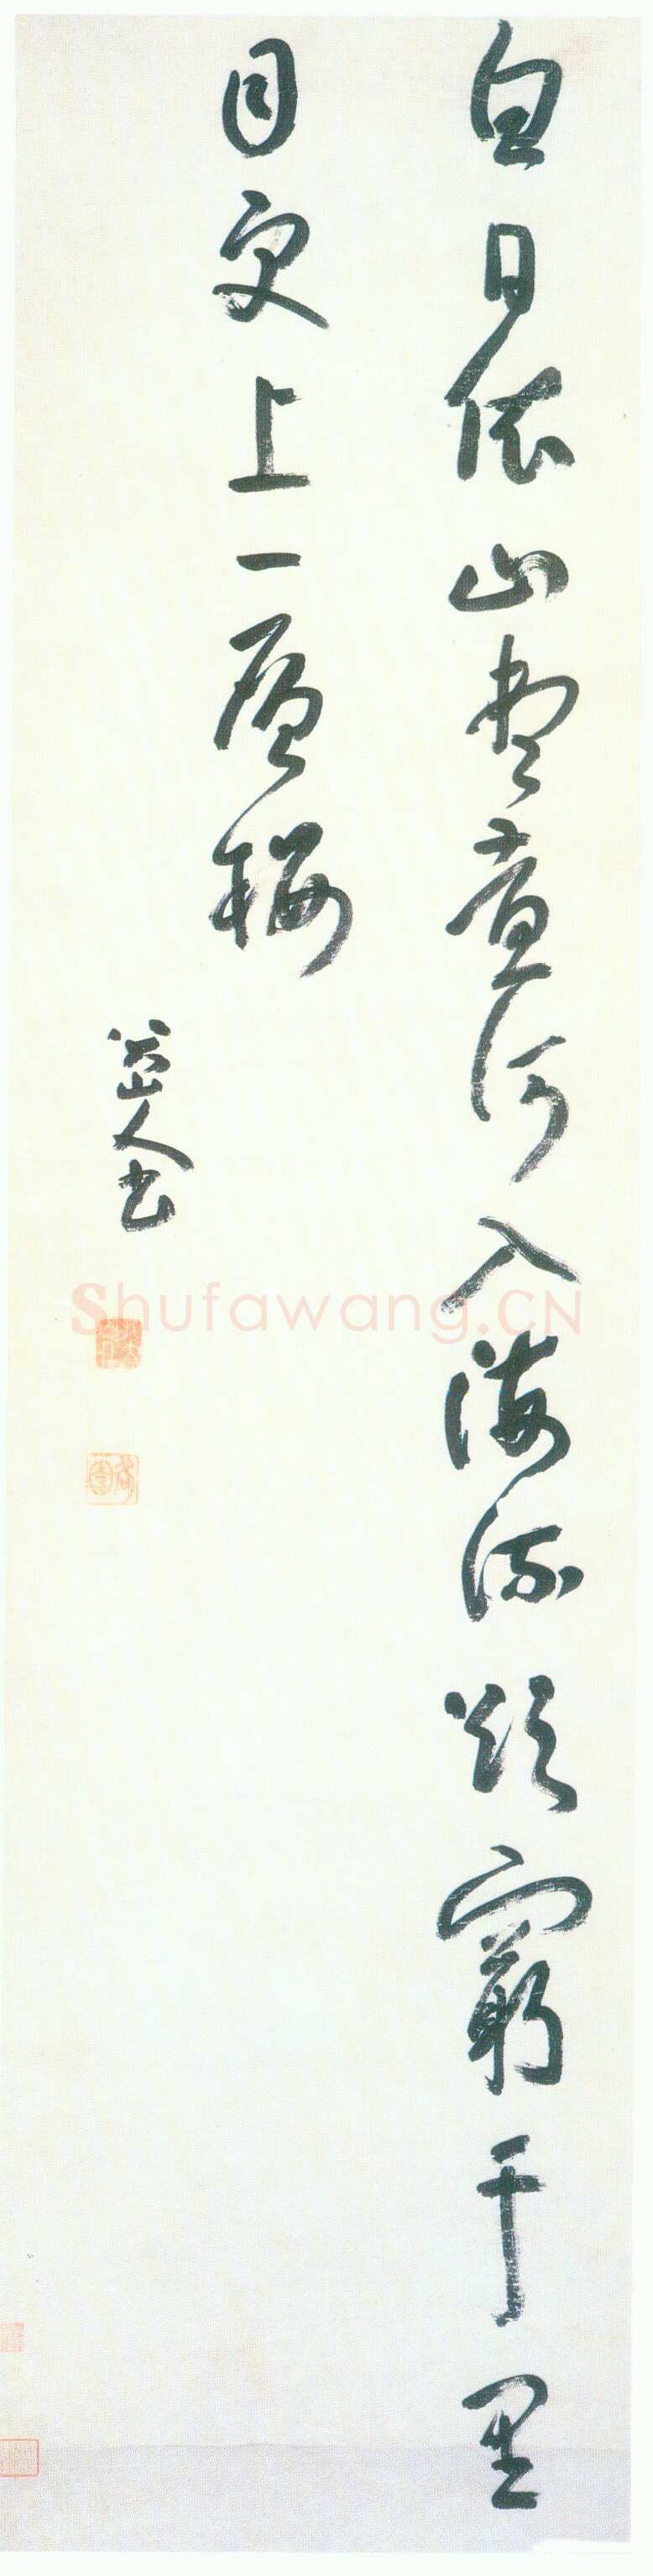 白日依山盡黃河入海流欲窮千里
目更上一層樓
八大山人書
Shufawang.CN